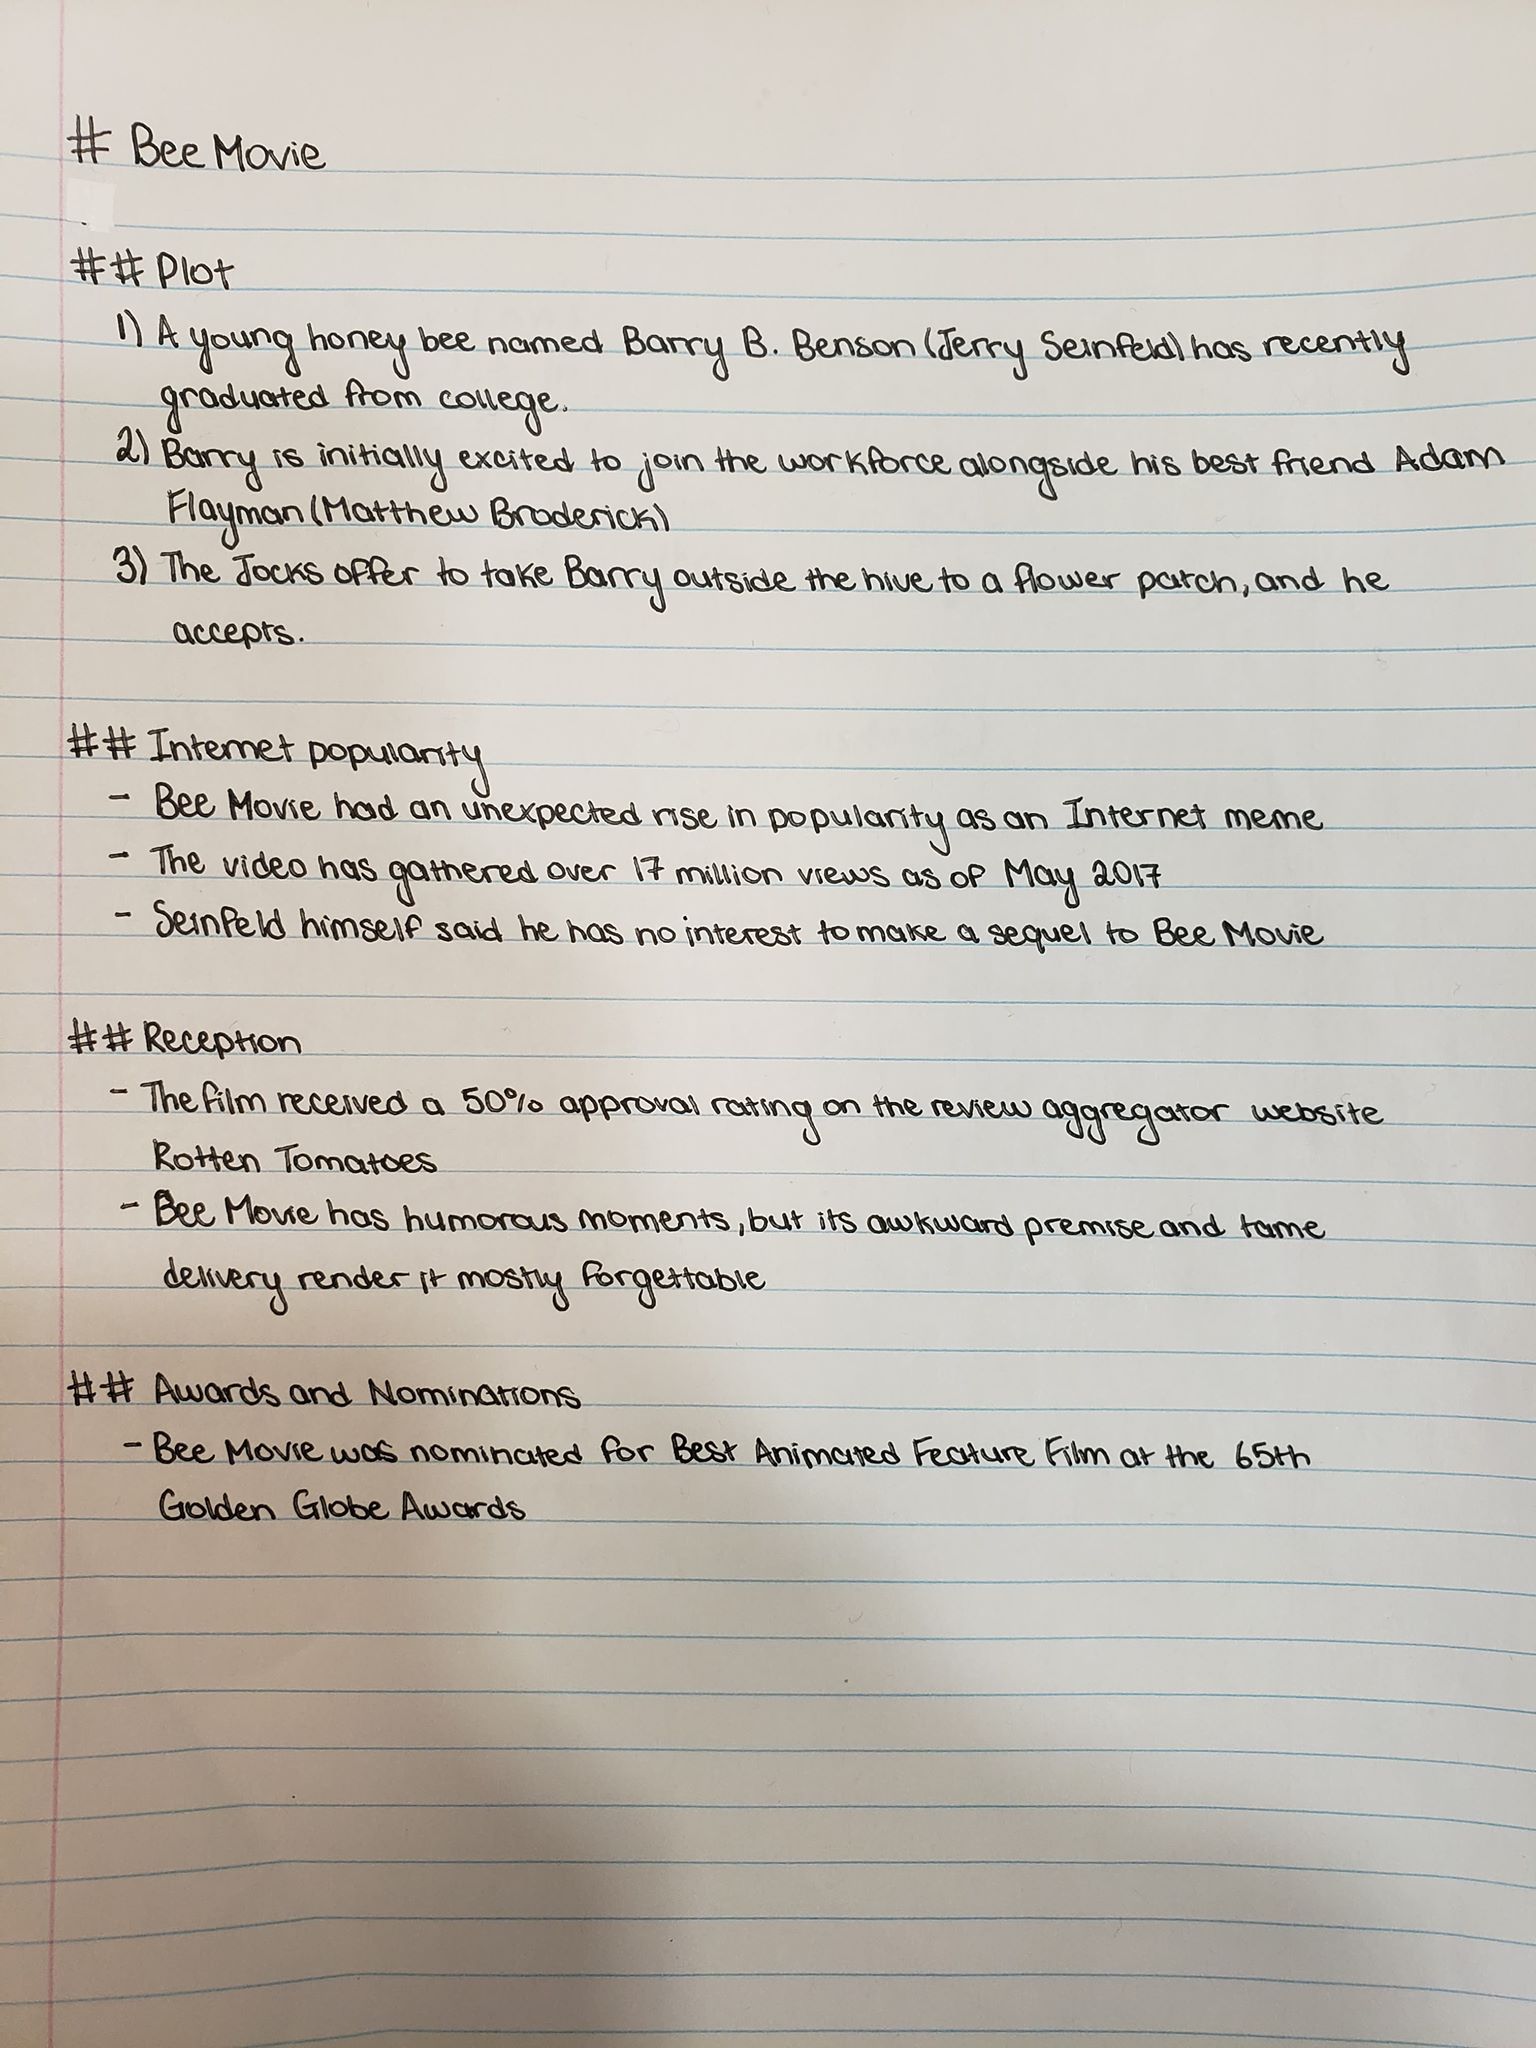 # Bee Movie
## Plot
1) A young honey bee named Barry B. Benson (Jerry Seinfeld) has recently
graduated from college.
2) Barry is initially excited to join the workforce alongside his best friend Adam
Flayman (Matthew Broderick)
3) The Jocks offer to take Barry outside the hive to a flower patch, and he
accepts.
## Internet popularity
- Bee Movie had an unexpected rise in popularity as an Internet meme
- The video has gathered over 17 million views as of May 2017
- Seinfeld himself said he has no interest to make a sequel to Bee Movie
## Reception
- The film received a 50% approval rating on the review aggregator website
Rotten Tomatoes
- Bee Movie has humorous moments, but its awkward premise and tame
delivery render it mostly forgettable
## Awards and Nominations
- Bee Movie was nominated for Best Animated Feature Film at the 65th
Golden Globe Awards